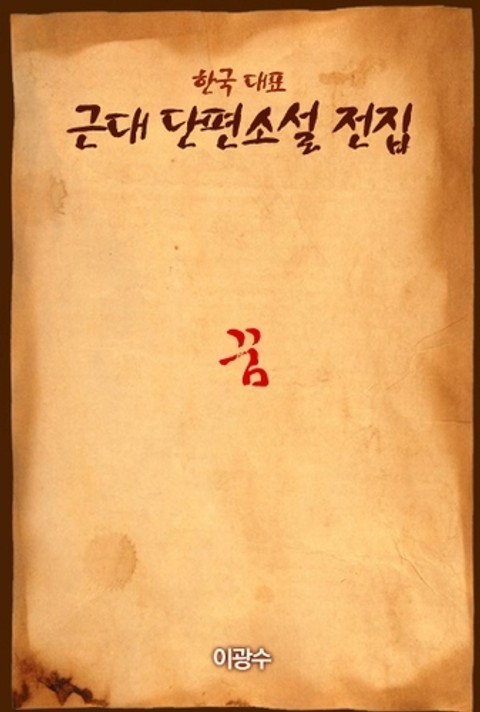 한국 대표
근대 단편소설 전집
꿈
이광수